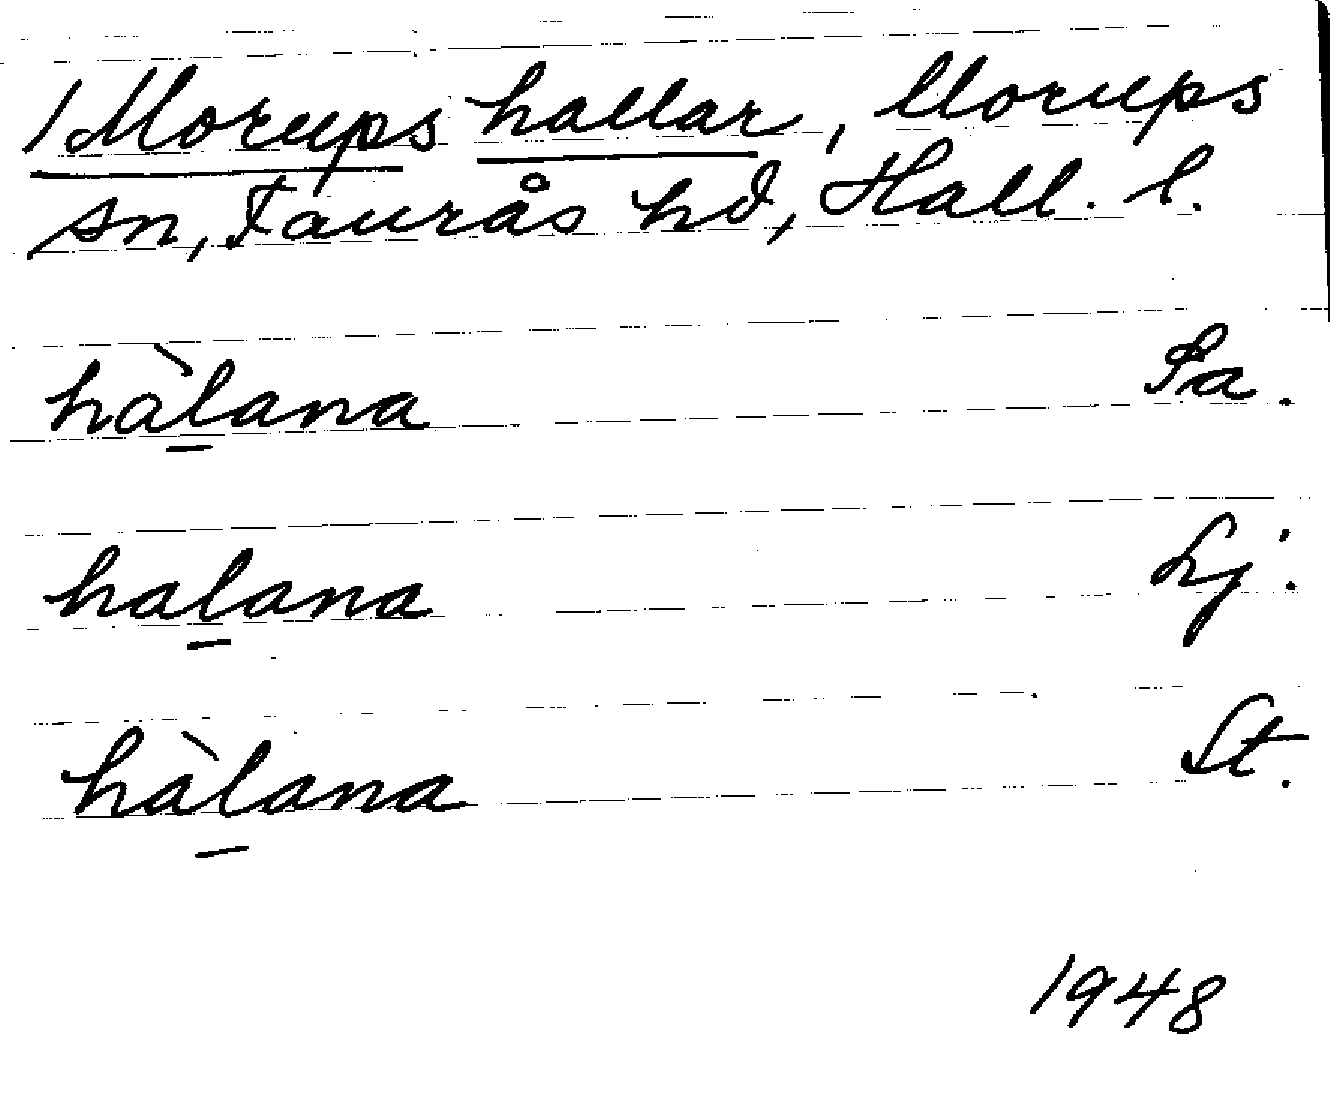 1 Morups hallar, Morups
sn, Faurås hd, Hall. l.
hàlana Sa.
halana Lj.
hàlana St.
1948